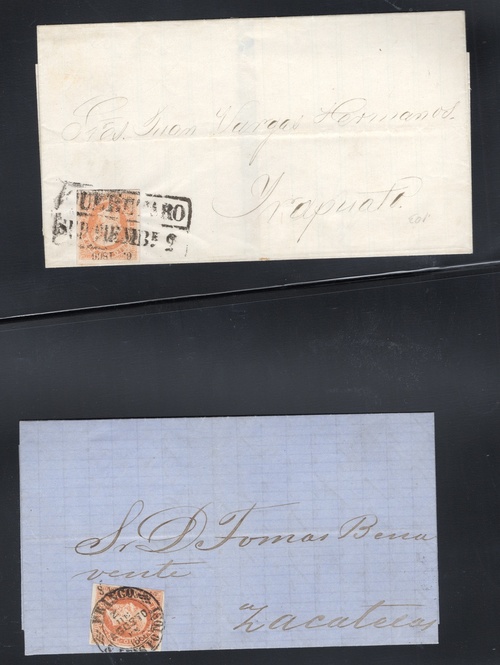 Sres. Juan Vargas Hermanos.
Irapuato
QUERETARO
Sr D Tomas Bena
vente
Zacatecas
FRANCO